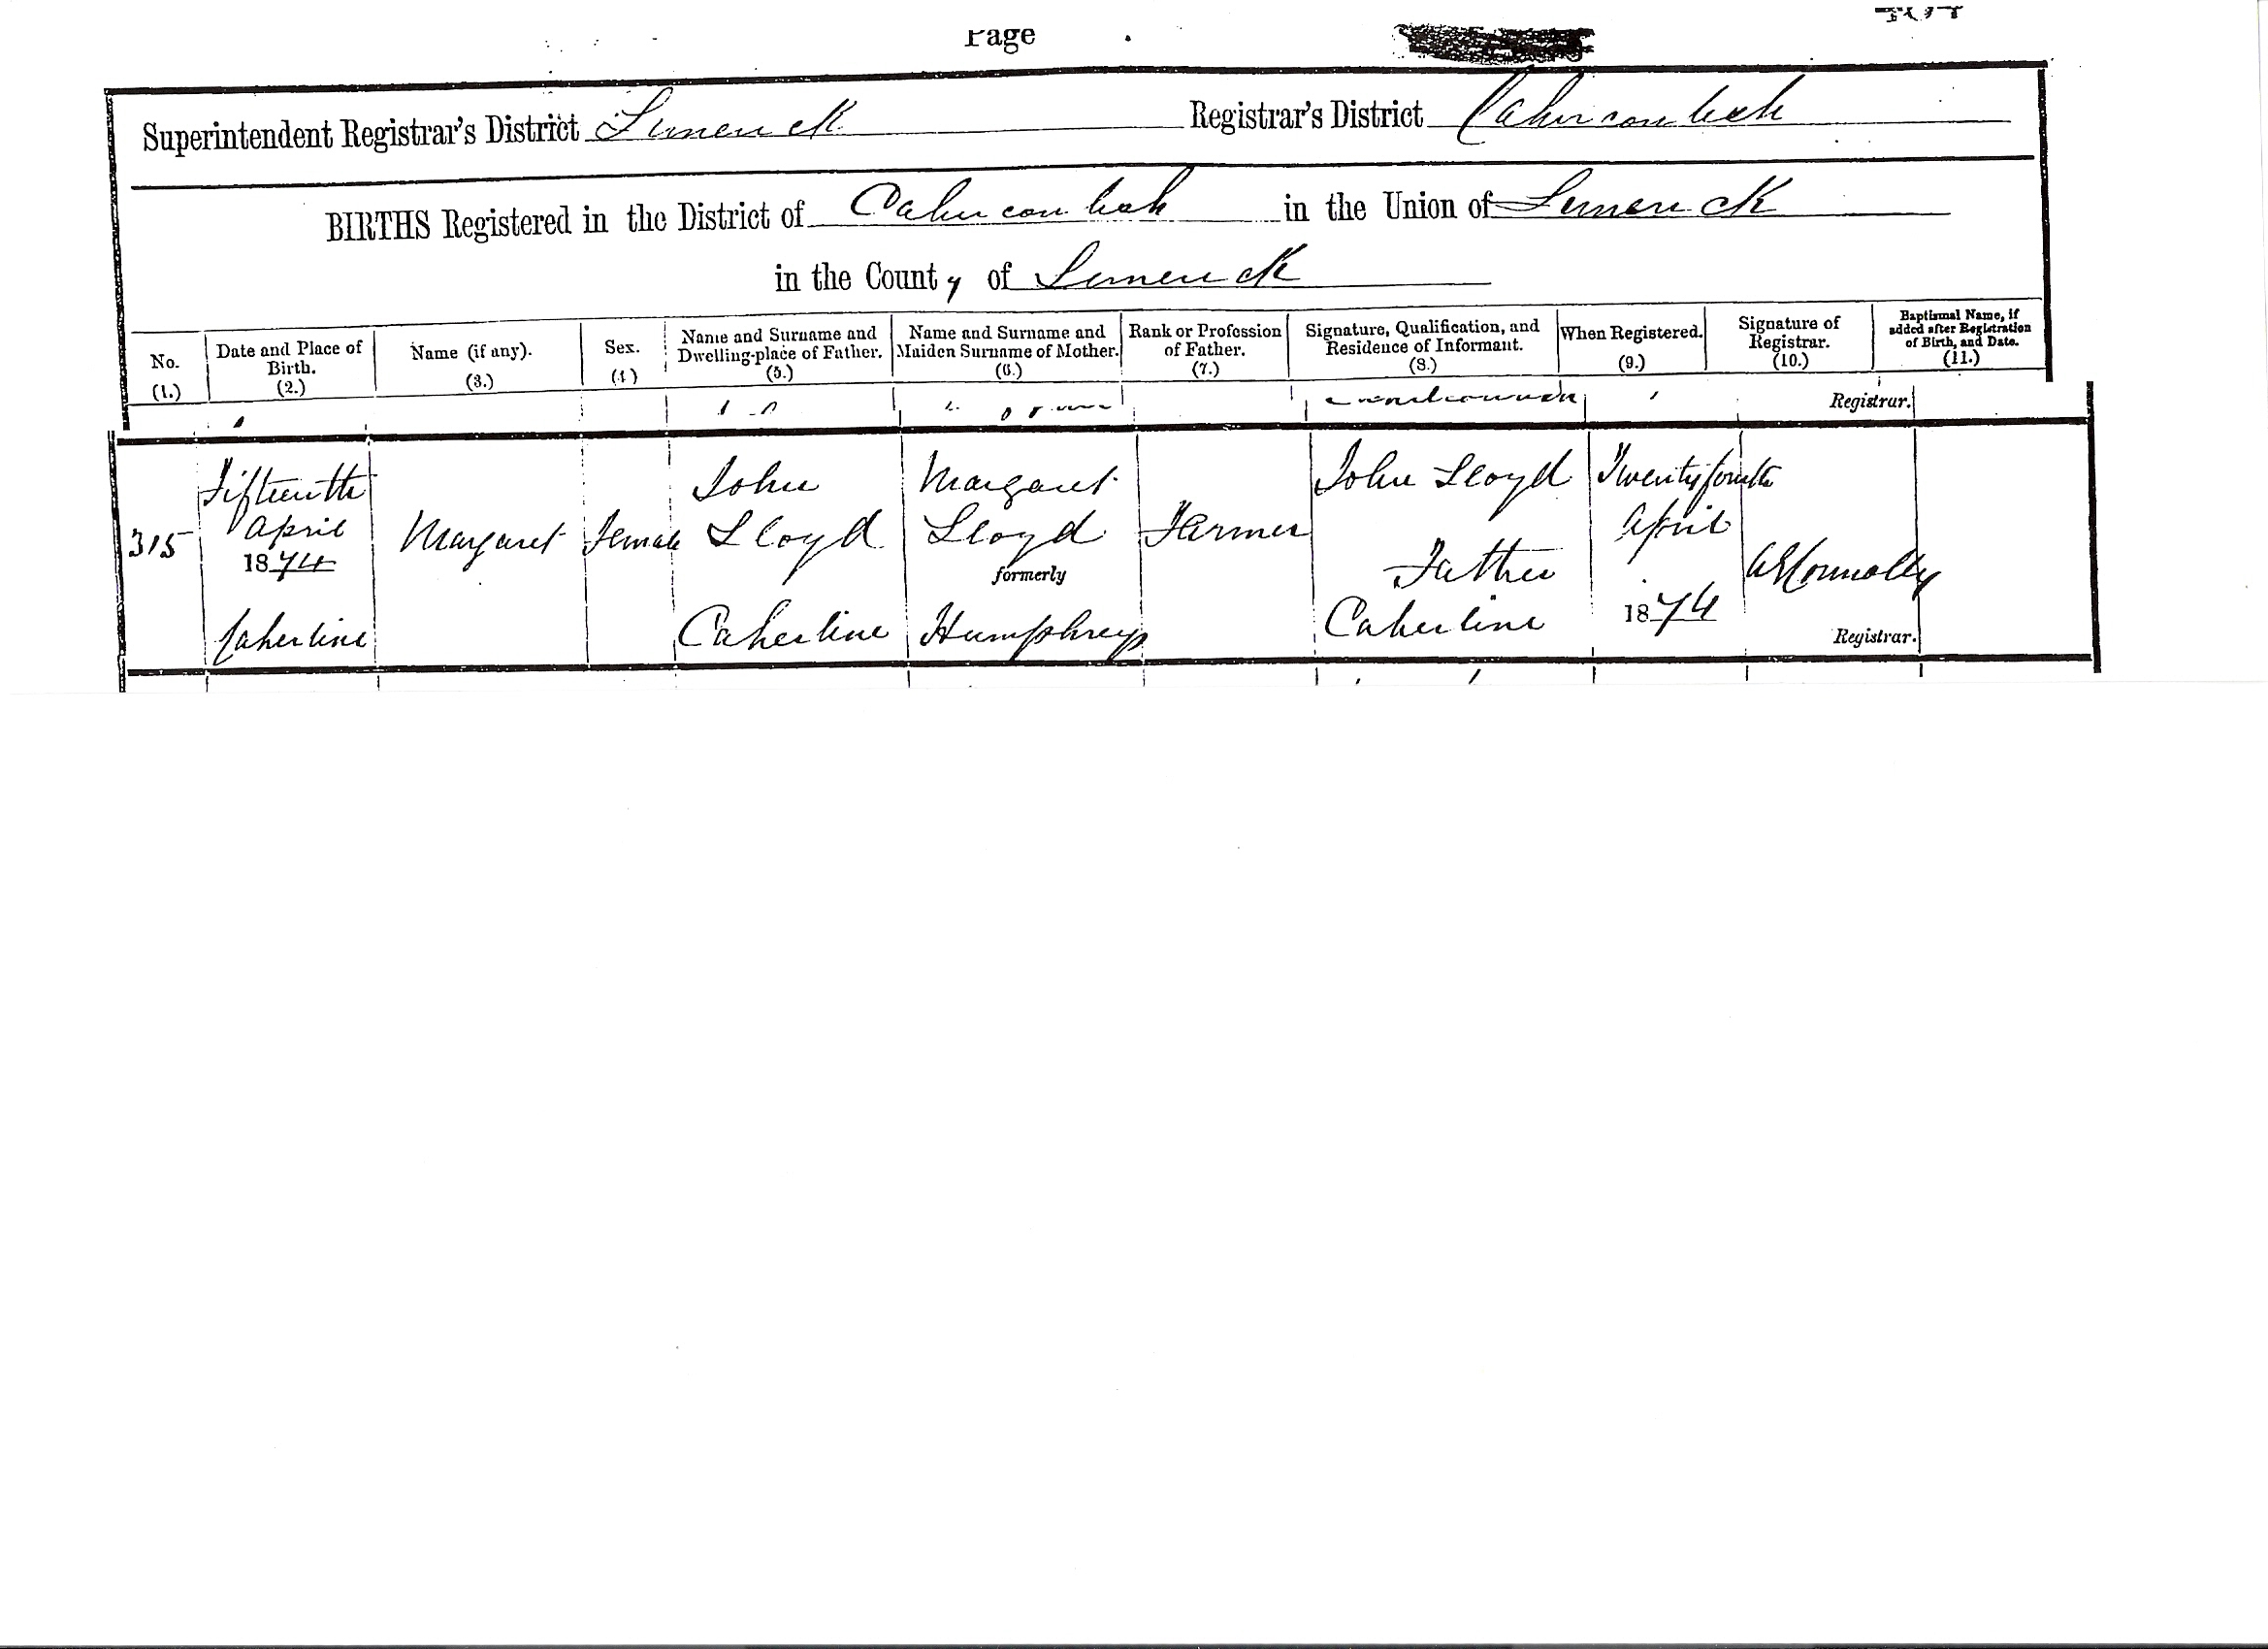 Page
Superintendent Registrar's District Limerick Registrar's District Cahirconlish
BIRTHS Registered in the District of Cahirconlish in the Union of Limerick
in the County of Limerick
No.
(1.)
Date and Place of
Birth.
(2.)
Name (if any).
(3.)
Sex.
(4)
Name and Surname and
Dwelling-place of Father.
(5.)
Name and Surname and
Maiden Surname of Mother.
(6.)
Rank or Profession
of Father.
(7.)
Signature, Qualification, and
Residence of Informant.
(8.)
When Registered.
(9.)
Signature of
Registrar.
(10.)
Baptismal Name, if
added after Registration
of Birth, and Date.
(11.)
Registrar.
315
Fifteenth
April
1874
Caherline
Margaret
Female
John
Lloyd
Caherline
Margaret
Lloyd
formerly
Humphreys
Farmer
John Lloyd
Father
Caherline
Twenty fourth
April
1874
Connolly
Registrar.